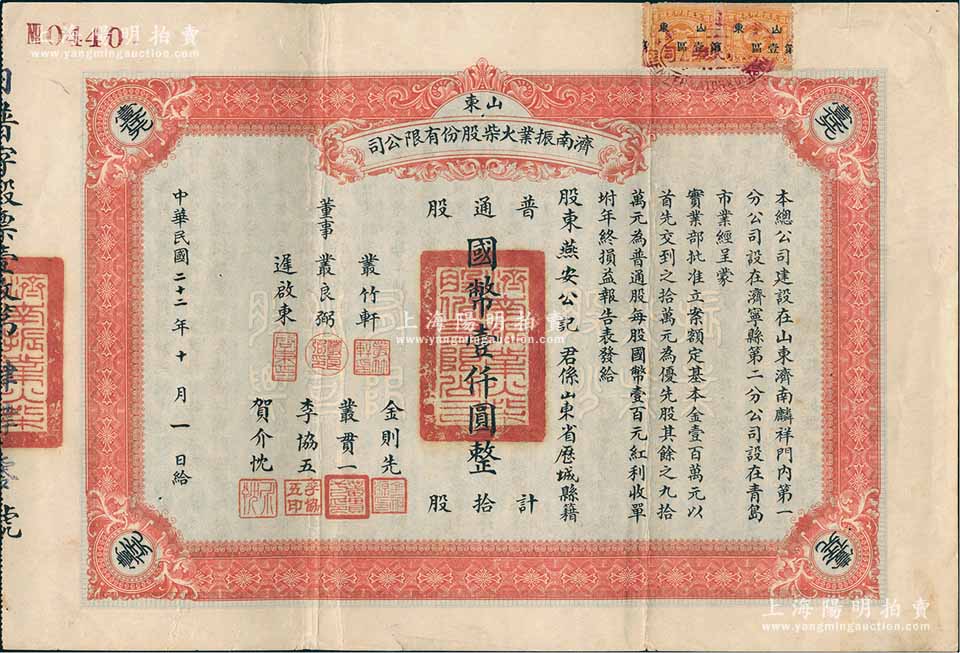 №0440
山東
濟南振業火柴股份有限公司
本總公司建設在山東濟南麟祥門內第一
分公司設在濟寧縣第二分公司設在青島
市業經呈蒙
實業部批准立案額定基本金壹百萬元以
首先交到之拾萬元為優先股其餘之九拾
萬元為普通股每股國幣壹百元紅利收單
坿年終損益報告表發給
股東燕安公記 君係山東省歷城縣籍
普通股
計拾股
國幣壹仟圓整
董事
叢竹軒
叢良弼
遲啟東
金則先
叢貫一
李協五
賀介忱
中華民國二十二年十月一日給
山東
第壹區
山東
第壹區
上海陽明拍賣
www.yangmingauction.com
上海陽明拍賣
www.yangmingauction.com
上海陽明拍賣
www.yangmingauction.com